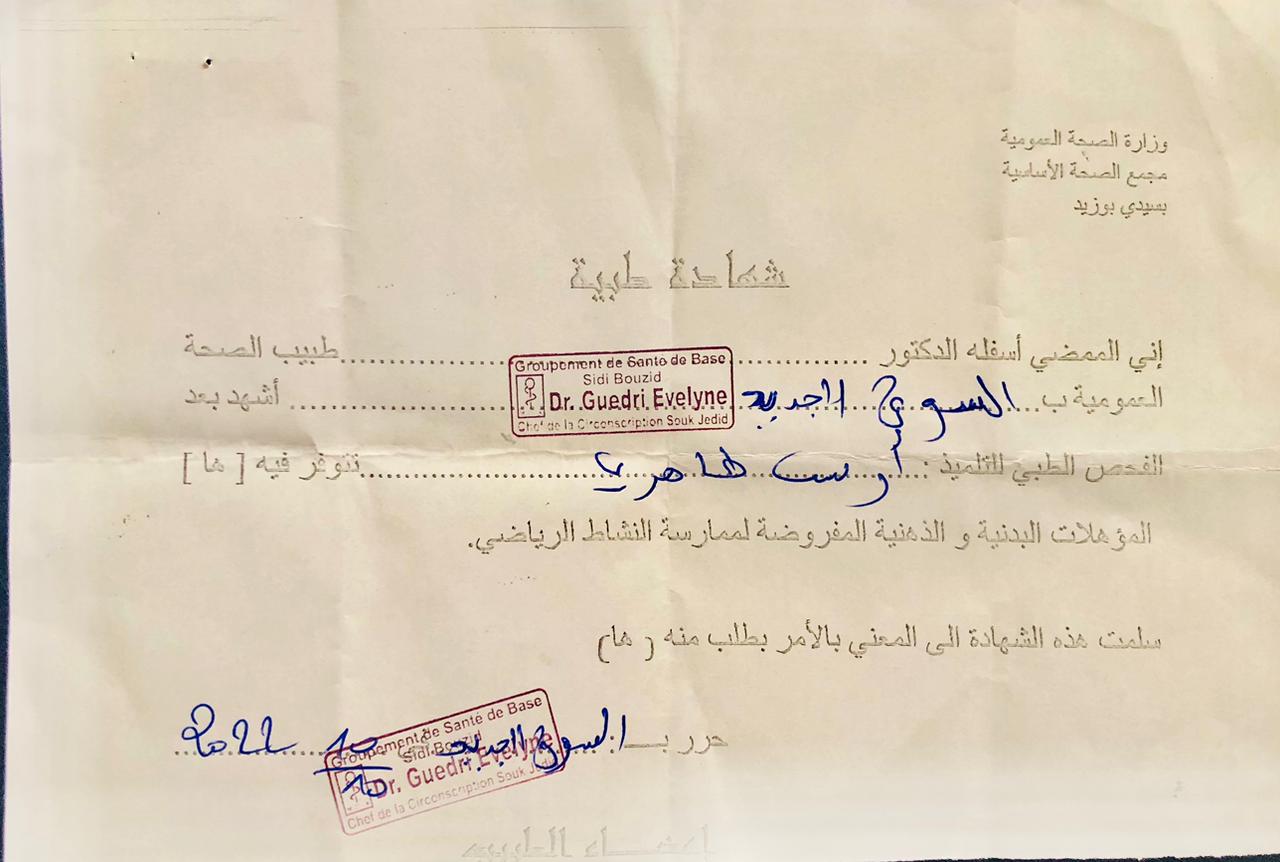 وزارة الصحة العمومية
مجمع الصحة الأساسية
بسيدي بوزيد
شهادة طبية
إني الممضي أسفله الدكتور ........................ طبيب الصحة
Groupement de Santé de Base
Sidi Bouzid
Dr. Guedri Evelyne
Chef de la Circonscription Souk Jedid
العمومية ب... السوق الجديد ........................ أشهد بعد
الفحص الطبي للتلميذ : أوس طاهري ........................ تتوفر فيه [ ها ]
المؤهلات البدنية و الذهنية المفروضة لممارسة النشاط الرياضي.
سلمت هذه الشهادة الى المعني بالأمر بطلب منه ( ها)
حرر بـ السوق الجديد 10 / 10 2022
Groupement de Santé de Base
Sidi Bouzid
Dr. Guedri Evelyne
Chef de la Circonscription Souk Jedid
إمضاء الطبيب